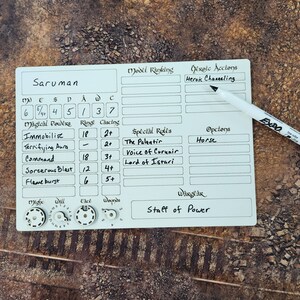 Saruman
Model Ranking
Heroic Actions
Heroic Channeling
Mv F S D A W C
6 5 4 5 1 3 7
Magical Powers Range Casting
Immobilise 18 2+
Terrifying Aura - 2+
Command 18 3+
Sorcerous Blast 12 4+
Flameburst 6 5+
Special Rules
The Palantir
Voice of Curunir
Lord of Istari
Options
Horse
Might Will Fate Wounds
Wargear
Staff of Power
EXPO